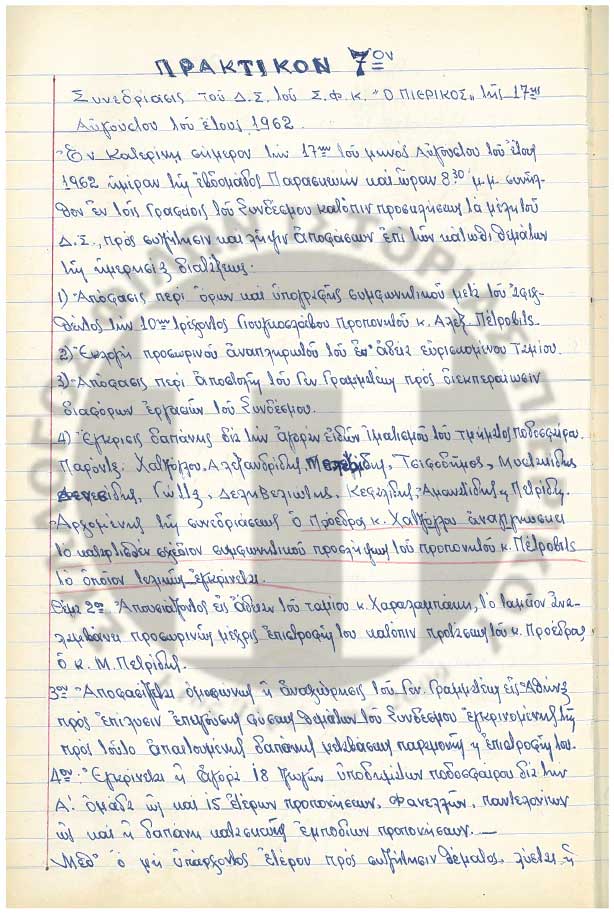 ΠΡΑΚΤΙΚΟΝ 7ΟΝ
Συνεδρίασις τοῦ Δ.Σ. τοῦ Σ.Φ.Κ. "Ο ΠΙΕΡΙΚΟΣ" τῆς 17ης
Αὐγούστου τοῦ ἔτους 1962.
Ἐν Κατερίνῃ σήμερον τὴν 17ην τοῦ μηνὸς Αὐγούστου τοῦ ἔτους
1962 ἡμέραν τῆς ἑβδομάδος Παρασκευὴν καὶ ὥραν 8 30 μ.μ. συνῆλ-
θον ἐν τοῖς Γραφείοις τοῦ Συνδέσμου κατόπιν προσκλήσεως τὰ μέλη τοῦ
Δ.Σ., πρὸς συζήτησιν καὶ λῆψιν ἀποφάσεων ἐπὶ τῶν κάτωθι θεμάτων
τῆς ἡμερησίας διατάξεως:
1) Ἀπόφασις περὶ ὅρων καὶ ὑπογραφῆς συμφωνητικοῦ μετὰ τοῦ ἀφιχ-
θέντος τὴν 10ην τρέχοντος Γιουγκοσλάβου προπονητοῦ κ. Ἀλεξ. Πέτροβιτς.
2) Ἐκλογὴ προσωρινοῦ ἀναπληρωτοῦ τοῦ ἐπ' ἀδείᾳ εὑρισκομένου Ταμίου.
3) Ἀπόφασις περὶ ἀποστολῆς τοῦ Γεν. Γραμματέως πρὸς διεκπεραίωσιν
διαφόρων ἐργασιῶν τοῦ Συνδέσμου.
4) Ἔγκρισις δαπάνης διὰ τὴν ἀγορὰν εἰδῶν ἱματισμοῦ τοῦ τμήματος ποδοσφαίρου.
Παρόντες: Χατζόγλου, Ἀλεξανδρίδης, Τσιφοδήμος,
Δεληβελιώτης, Κεφαλίδης, Ἀμανατίδης, Πετρίδης.
Ἀρχομένης τῆς συνεδριάσεως ὁ Πρόεδρος κ. Χατζόγλου ἀναγιγνώσκει
τὸ καταρτισθὲν σχέδιον συμφωνητικοῦ προσλήψεως τοῦ προπονητοῦ κ. Πέτροβιτς
τὸ ὁποῖον τελικῶς ἐγκρίνεται.
Θέμα 2ον Ἀπουσιάζοντος εἰς ἄδειαν τοῦ ταμίου κ. Χαραλαμπάκη, τὸ ταμεῖον ἀνα-
λαμβάνει προσωρινῶς μέχρις ἐπιστροφῆς του κατόπιν προτάσεως τοῦ κ. Προέδρου
ὁ κ. Μ. Πετρίδης.
3ον Ἀποφασίζεται ὁμοφώνως ἡ ἀναχώρησις τοῦ Γεν. Γραμματέως εἰς Ἀθήνας
πρὸς ἐπίλυσιν ἐπειγούσης φύσεως θεμάτων τοῦ Συνδέσμου ἐγκρινομένης τῆς
πρὸς τοῦτο ἀπαιτουμένης δαπάνης μεταβάσεως παραμονῆς ἐπιστροφῆς του.
4ον Ἐγκρίνεται ἡ ἀγορὰ 18 ζευγῶν ὑποδημάτων ποδοσφαίρου διὰ τὴν
Α' ὁμάδα ὡς καὶ 15 ἑτέρων προπονήσεως, Φανελλῶν, παντελονίων
ὡς καὶ ἡ δαπάνη κατασκευῆς ἐμποδίων προπονήσεων.—
Μεθ' ὁ μὴ ὑπάρχοντος ἑτέρου πρὸς συζήτησιν θέματος, λύεται ἡ